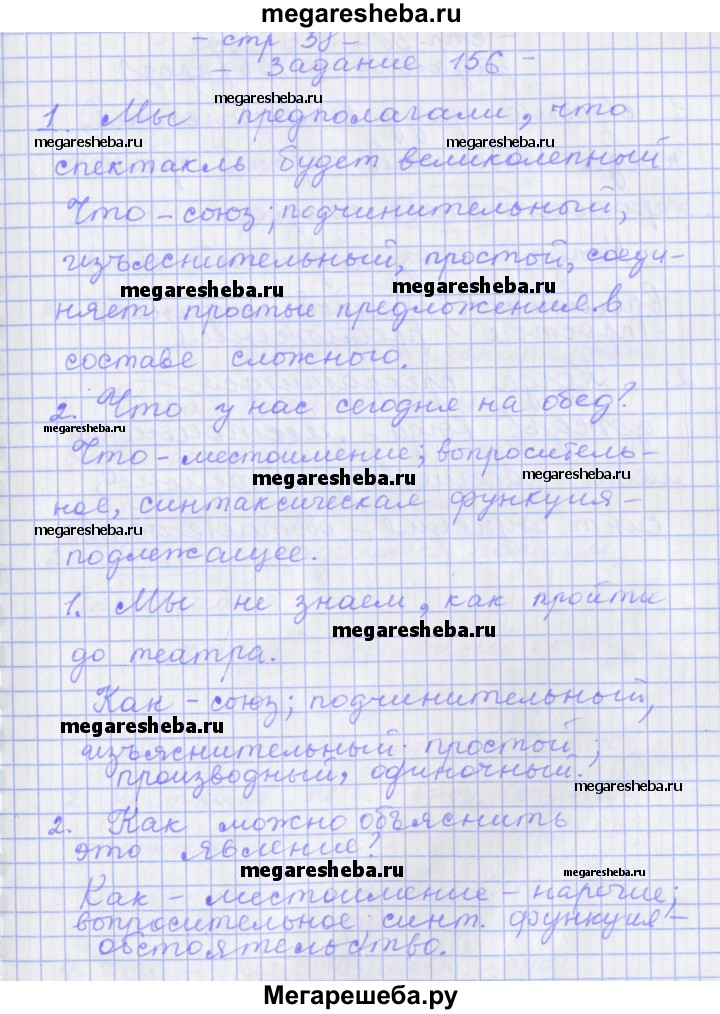 megaresheba.ru
- стр 58 -
- Задание 156 -
megaresheba.ru
1. Мы предполагали, что
megaresheba.ru megaresheba.ru
спектакль будет великолепный
Что - союз; подчинительный,
изъяснительный, простой, соеди-
megaresheba.ru megaresheba.ru
няет простые предложения в
составе сложного.
2. Что у нас сегодня на обед?
megaresheba.ru
Что - местоимение; вопроситель-
megaresheba.ru megaresheba.ru
ное, синтаксическая функция -
megaresheba.ru
подлежащее.
1. Мы не знаем, как пройти
megaresheba.ru
до театра.
Как - союз; подчинительный,
megaresheba.ru
изъяснительный; простой;
производный, одиночный.
megaresheba.ru
2. Как можно объяснить
это явление?
megaresheba.ru
Как - местоимение - наречие;
вопросительное; синт. функция -
обстоятельство.
megaresheba.ru
Мегарешеба.ру